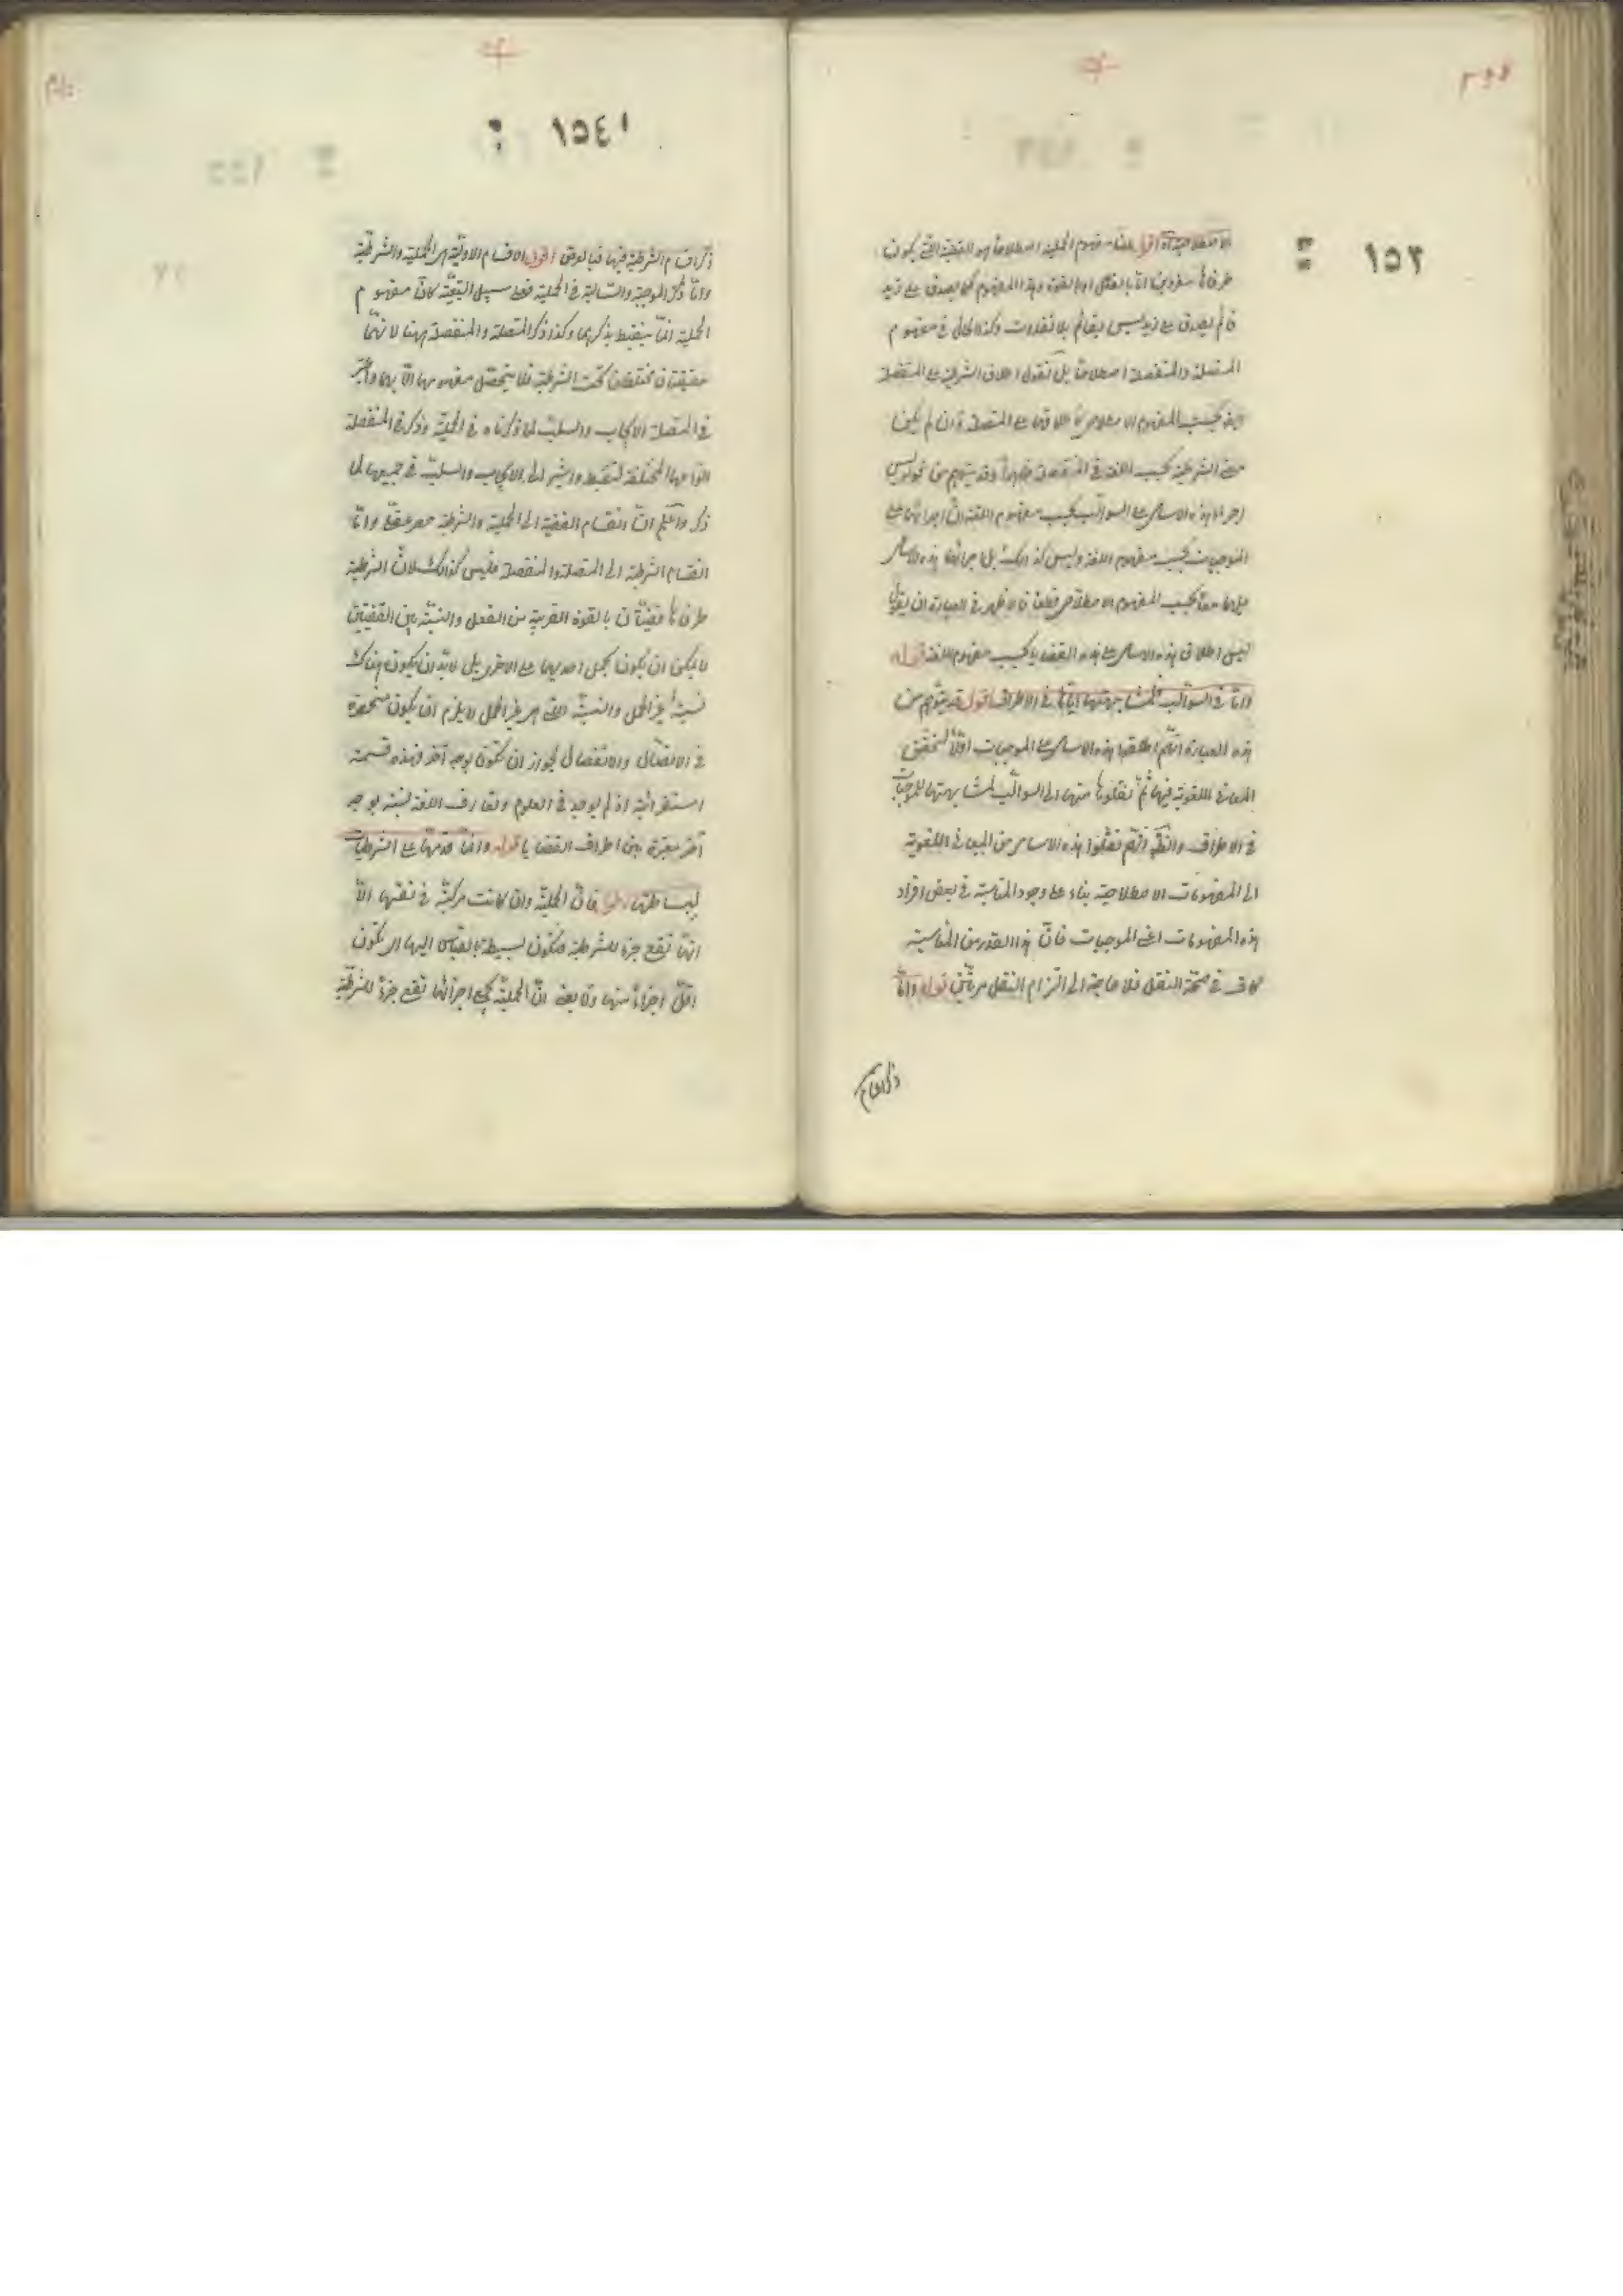 ١٥٣
الاصطلاحية آه اقول مفهوم الحملية اصطلاحا هو القضية التى يكون
طرفاها مفردين اما بالفعل او بالقوة وهذا المفهوم كما يصدق على زيد
قائم يصدق على زيد ليس بقائم بلا تفاوت وكذا الحال فى مفهوم
المتصلة والمنفصلة اصطلاحا بل نقول اطلاق الشرطية على المنفصلة
ايضا بحسب المفهوم الاصطلاحى كاطلاقها على المتصلة وان لم يكن
معنى الشرطية بحسب اللغة فى المنفصلة ظاهرا وقد يتوهم من قوله ليس
اجراء هذه الاسامى على السوالب بحسب مفهوم اللغة ان اجرائها على
الموجبات بحسب مفهوم اللغة وليس كذلك بل اجرائها هذه الاسامى
عليها معا بحسب المفهوم الاصطلاحى قطعا فالاظهر فى العبارة ان يقول
ليس اطلاق هذه الاسامى على هذه القضايا بحسب مفهوم اللغة قوله
واما فى السوالب فلمشابهتها اياها فى الاطراف اقول قد يتوهم من
هذه العبارة انهم اطلقوا هذه الاسامى على الموجبات اولا لتحقق
المعانى اللغوية فيها ثم نقلوها منها الى السوالب لمشابهتها للموجبات
فى الاطراف والظ انهم نقلوا هذه الاسامى من المعانى اللغوية
الى المفهومات الاصطلاحية بناء على وجود المناسبة فى بعض افراد
هذه المفهومات اعنى الموجبات فان هذا القدر من المناسبة
كاف فى صحة النقل فلا حاجة الى التزام النقل مرتين قوله واما
ذكر اقسام
١٥٤
ذكر اقسام الشرطية فيها فبالعرض اقول الاقسام الاولية هى الحملية والشرطية
واما ذكر الموجبة والسالبة فى الحملية فعلى سبيل التبعية كان مفهوم
الحملية انما ينضبط بذكرهما وكذا ذكر المتصلة والمنفصلة ههنا لانهما
حقيقتان مختلفتان تحت الشرطية فلا يتحصل مفهومها الا بهما
فى المتصلة الايجاب والسلب لما ذكرناه فى الحملية وذكر فى المنفصلة
انواعها المختلفة لتنضبط واشير الى الايجاب والسلب فى جميعها لما
ذكر واعلم ان انقسام القضية الى الحملية والشرطية حصر عقلى واما
انقسام الشرطية الى المتصلة والمنفصلة فليس كذلك لان الشرطية
طرفاها قضيتان بالقوة القريبة من الفعل والنسبة بين القضيتين
لا يمكن ان يكون بحمل احديهما على الاخرى بل لا بد ان يكون هناك
نسبة غير الحمل والنسبة التى هى غير الحمل لا يلزم ان يكون منحصرة
فى الاتصال والانفصال لجواز ان تكون بوجه آخر فهذه قسمة
استقرائية اذ لم يوجد فى العلوم وتعارف اللغة نسبة بوجه
آخر معتبرة بين اطراف القضايا قوله وانما قدمها على الشرطيات
لبساطتها اقول فان الحملية وان كانت مركبة فى نفسها الا
انها تقع جزء للشرطية فتكون بسيطة بالقياس اليها اى يكون
اقل اجزاء منها ولا يعنى ان الحملية بجميع اجزائها تقع جزء للشرطية